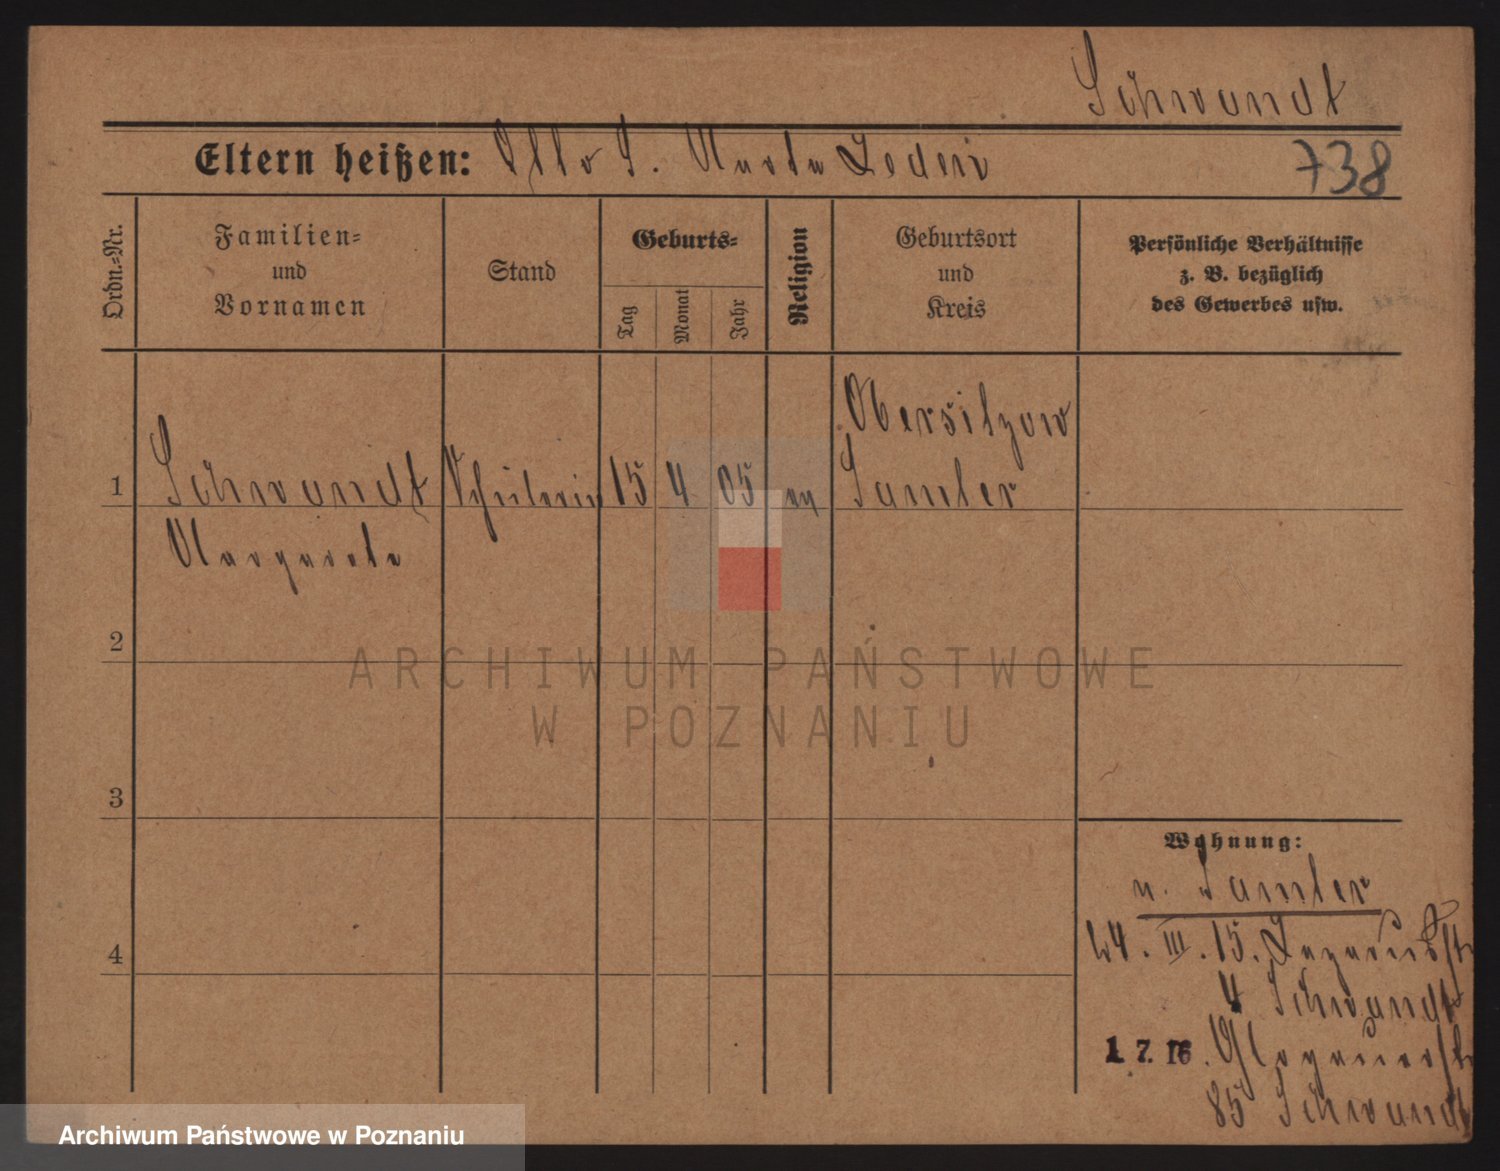 Schwandt
Eltern heißen: Otto S. Marta Zedler
738
Ordn.=Nr.
Familien=
und
Vornamen
Stand
Geburts=
Tag
Monat
Jahr
Religion
Geburtsort
und
Kreis
Persönliche Verhältnisse
z. B. bezüglich
des Gewerbes usw.
Obersitzow
1 Schwandt Schülerin 15 4 05 ev Samter
Margarete
2
3
4
Wohnung:
n. Samter
24. III. 15. Lazarusstr
4 Schwandt
1. 7. 16. Glogauerstr
85 Schwandt
ARCHIWUM PAŃSTWOWE
W POZNANIU
Archiwum Państwowe w Poznaniu